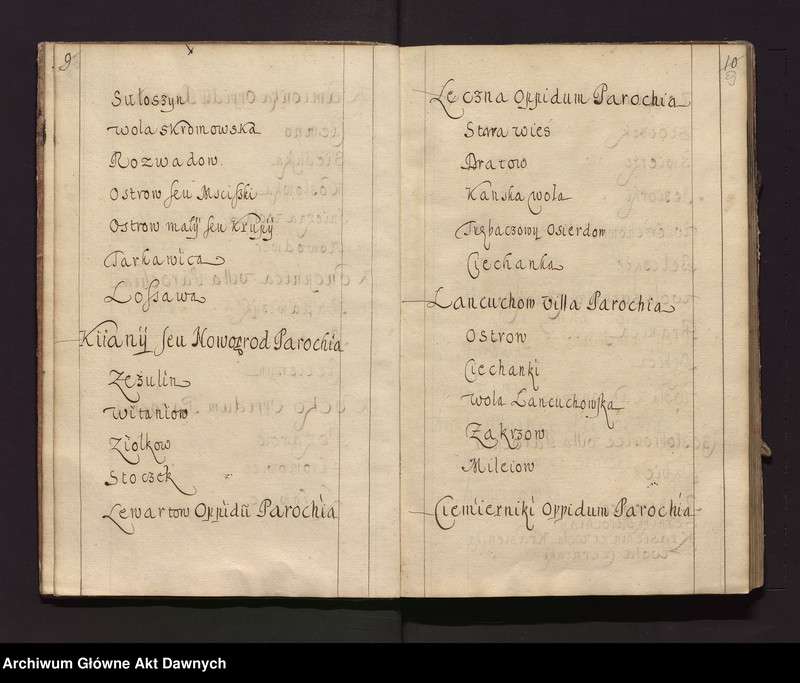 9
Sułoszyn
Wola Skromowska
Rozwadow
Ostrow seu Mscisski
Ostrow malÿ seu Krupÿ
Tarkawica
Lossawa
Kiianÿ seu Nowogrod Parochia
Zezulin
Witaniow
Ziolkow
Stoczek
Lewartow Oppidū Parochia
10
9
Łęczna Oppidum Parochia
Stara wies
Dratow
Kanska wola
Trębaczowy Osierdow
Ciechanka
Lancuchow villa Parochia
Ostrow
Ciechanki
Wola Lancuchowska
Zakrzow
Mileiow
Ciemierniki Oppidum Parochia
Archiwum Główne Akt Dawnych